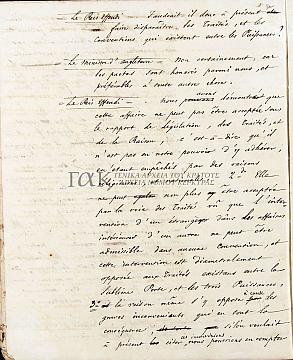 — Le Reis effendi — Faudrait il donc à présent
faire disparaître, les Traités, et les
Conventions qui existent entre les Puissances, ?
— Le ministre d'angleterre — Non certainement, car
les pactes sont honorés parmi nous, et
préférables à toute autre chose.
— Le Reis Effendi — Nous avons démontré que
cette affaire ne peut pas être acceptée sous
le rapport de législation, des Traités, et
de la Raison; c'est-à-dire qu'il
n'est pas en notre pouvoir d'y adhérer,
en étant empêchés par des raisons
législatives, 2.de Elle
ne peut non plus être acceptée
par la voie des Traités vû que l'inter
vention d'un étranger dans les affaires
intérieures d'un autre ne peut être
admissible dans aucune Convention, et
cette intervention est diamétralement
opposée aux Traités existans entre la
Sublime Porte, et les trois Puissances,
3.o la raison même s'y oppose à cause des
graves inconvenients qui en sont la
conséquence, si l'on voulait
à présent les nous pourrions en compter
ΓΑΚ
ΓΕΝΙΚΑ ΑΡΧΕΙΑ ΤΟΥ ΚΡΑΤΟΥΣ
ΑΡΧΕΙΑ ΝΟΜΟΥ ΚΕΡΚΥΡΑΣ